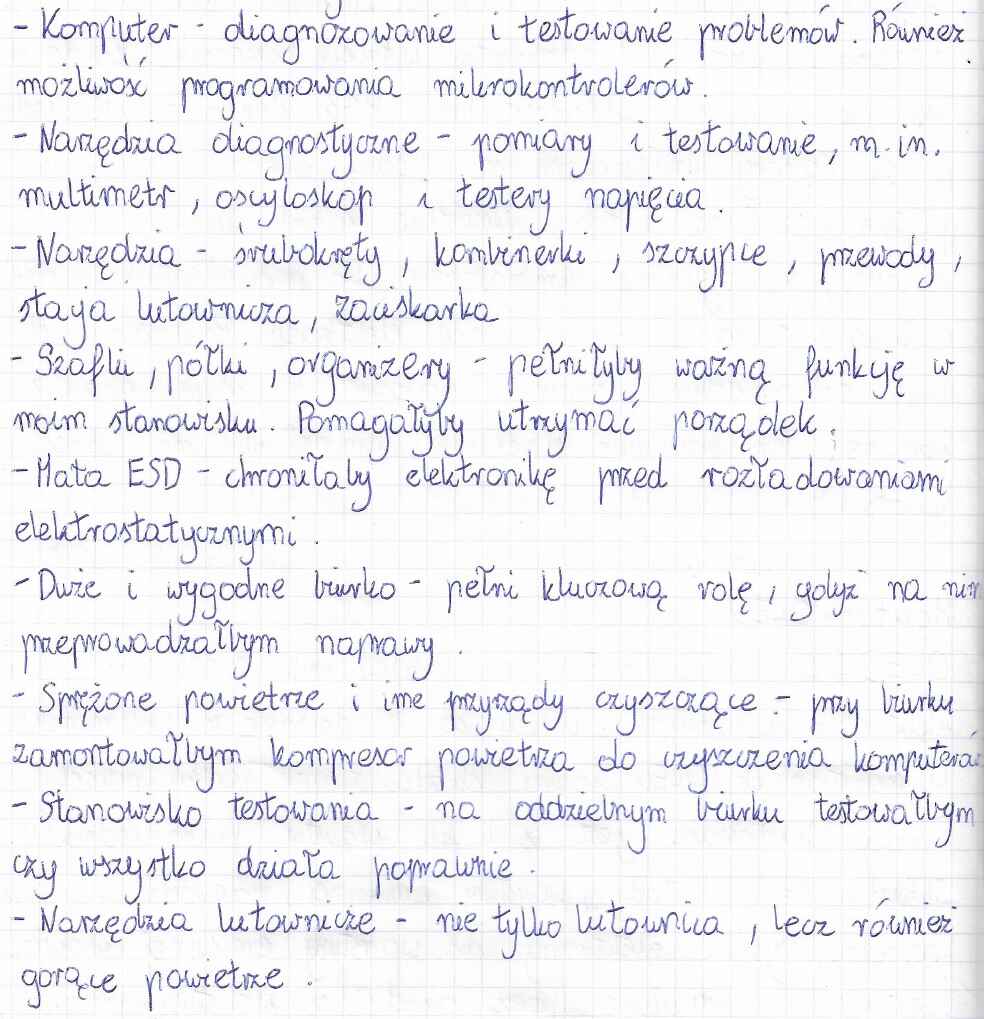 - Komputer - diagnozowanie i testowanie problemów. Również
możliwość programowania mikrokontrolerów.
- Narzędzia diagnostyczne - pomiary i testowanie, m.in.
multimetr, oscyloskop i testery napięcia.
- Narzędzia - śrubokręty, kombinerki, szczypce, przewody,
stacja lutownicza, zaciskarka
- Szafki, półki, organizery - pełniłyby ważną funkcję w
moim stanowisku. Pomagałyby utrzymać porządek.
- Mata ESD - chroniłaby elektronikę przed rozładowaniami
elektrostatycznymi.
- Duże i wygodne biurko - pełni kluczową rolę, gdyż na nim
przeprowadzałbym naprawy.
- Sprężone powietrze i inne przyrządy czyszczące - przy biurku
zamontowałbym kompresor powietrza do czyszczenia komputerów
- Stanowisko testowania - na oddzielnym biurku testowałbym
czy wszystko działa poprawnie.
- Narzędzia lutownicze - nie tylko lutownica, lecz również
gorące powietrze.